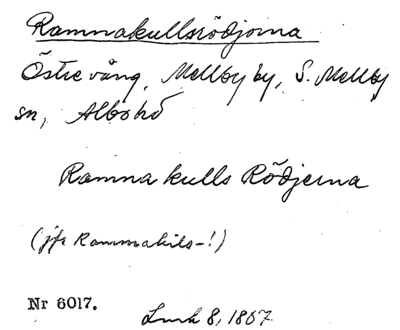 Ramnakullsrödjorna
Östre vång, Mellby by, S. Mellby
sn, Albo hd
Ramna kulls Rödjerna
(jfr Rammakils-!)
Nr 6017. Lmk 8, 1807